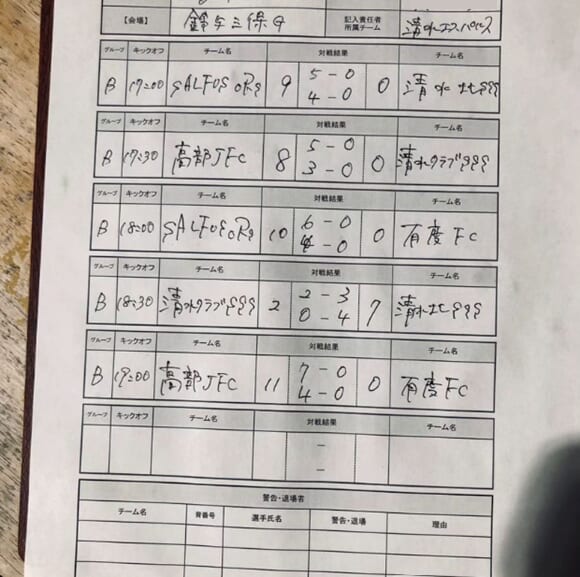 【会場】 鈴与三保G 記入責任者 所属チーム 清水エスパルス
グループ キックオフ チーム名 対戦結果 チーム名
B 17:00 SALFUS oRs 9 5-0 4-0 0 清水北SSS
グループ キックオフ チーム名 対戦結果 チーム名
B 17:30 高部JFC 8 5-0 3-0 0 清水クラブSSS
グループ キックオフ チーム名 対戦結果 チーム名
B 18:00 SALFUS oRs 10 6-0 4-0 0 有度FC
グループ キックオフ チーム名 対戦結果 チーム名
B 18:30 清水クラブSSS 2 2-3 0-4 7 清水北SSS
グループ キックオフ チーム名 対戦結果 チーム名
B 19:00 高部JFC 11 7-0 4-0 0 有度FC
グループ キックオフ チーム名 対戦結果 チーム名
-
-
警告・退場者
チーム名 背番号 選手氏名 警告・退場 理由